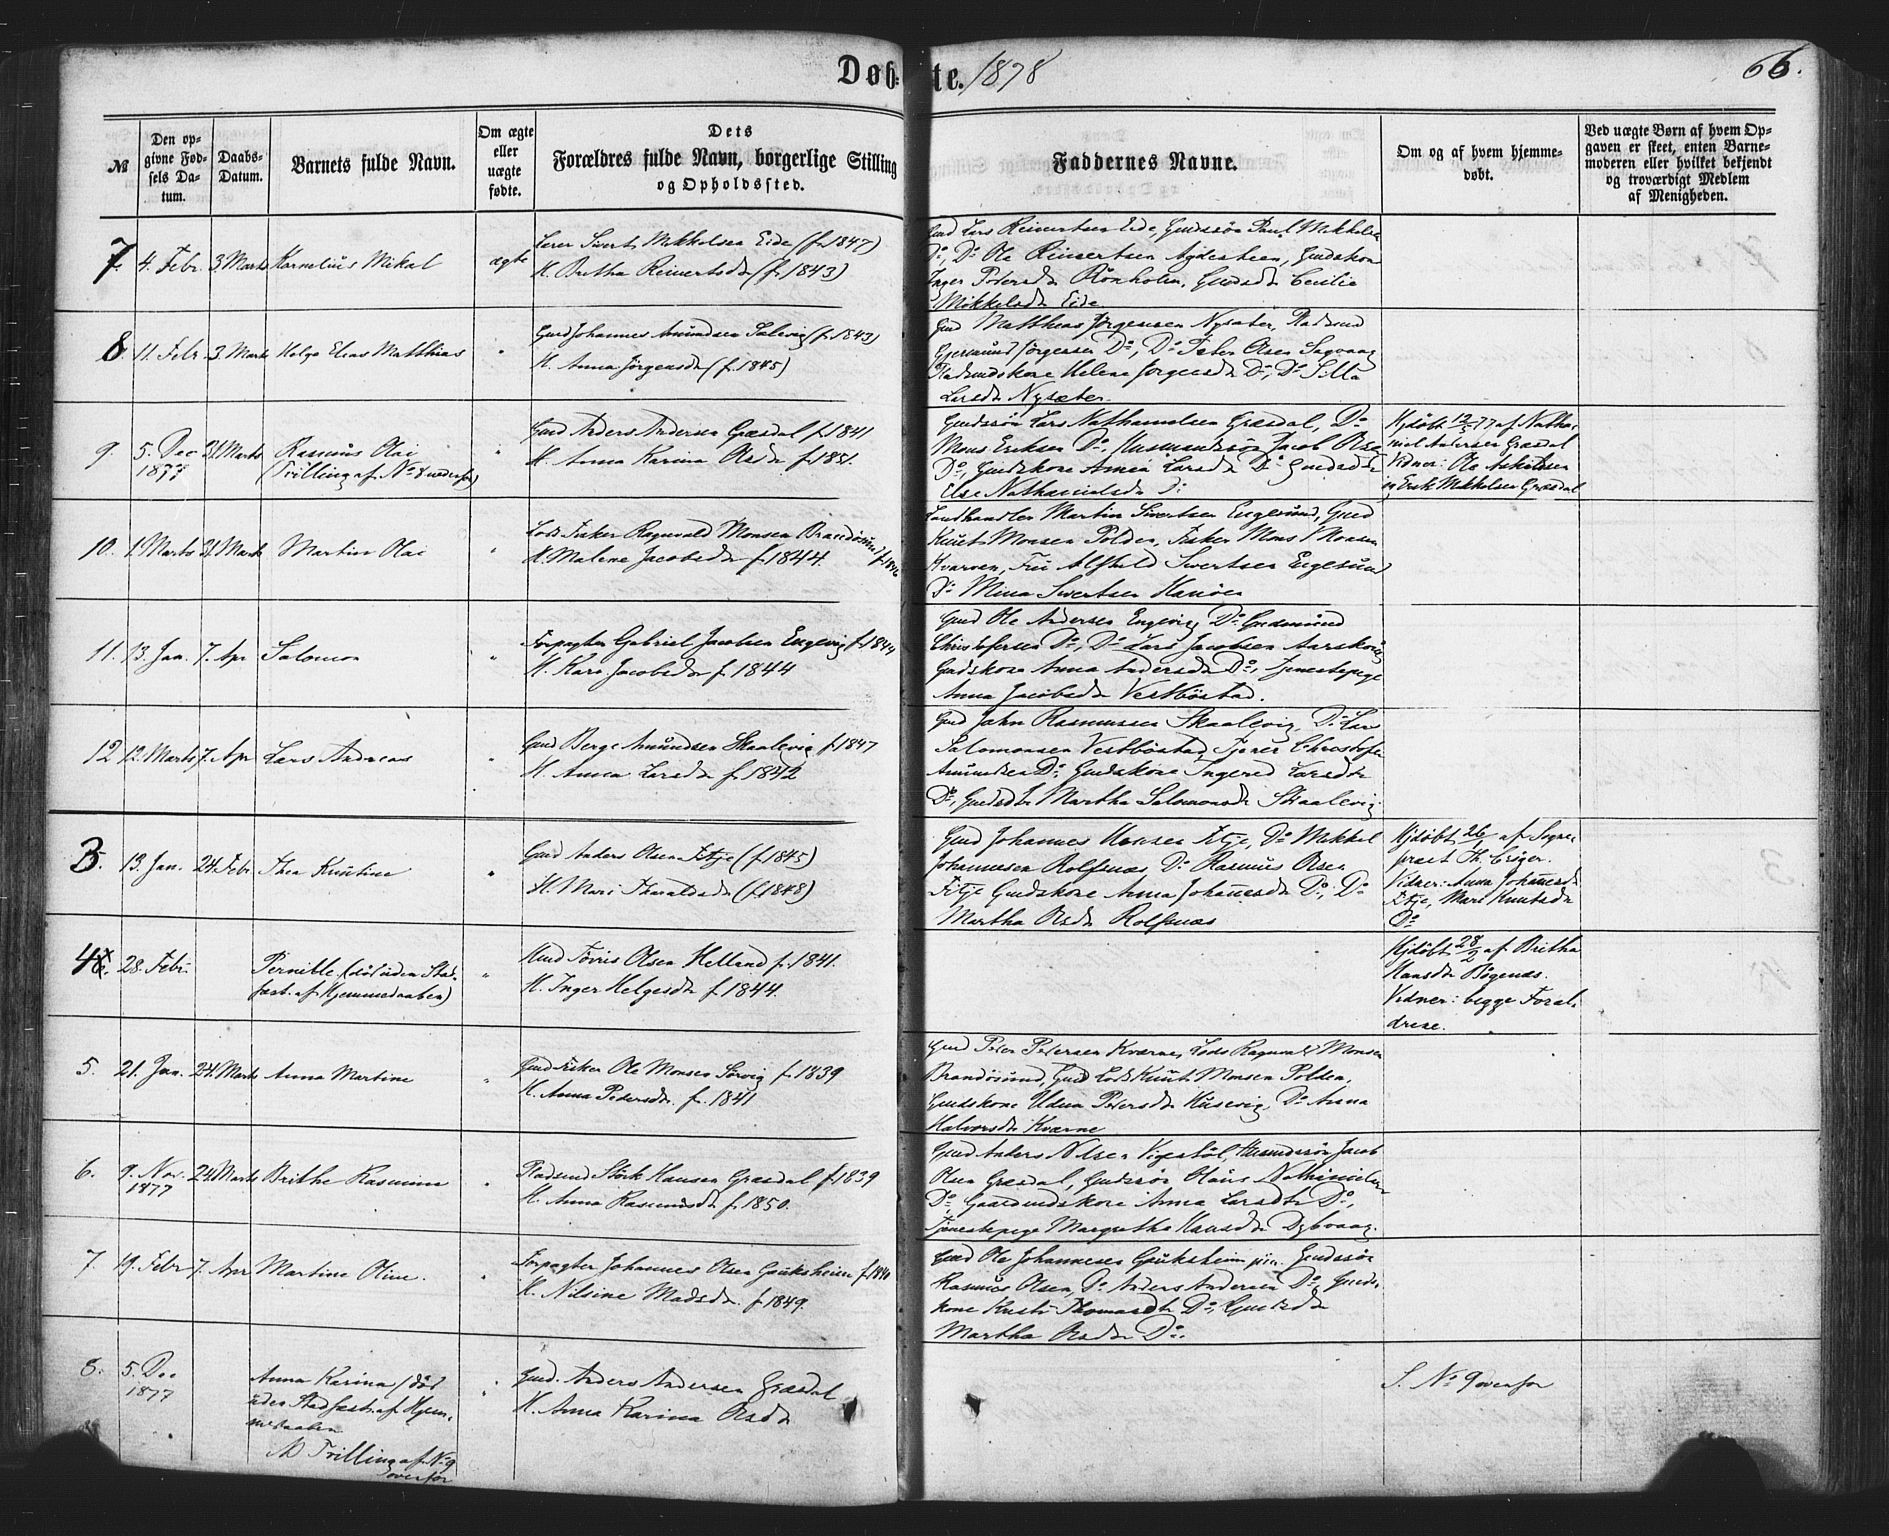 Døb-
te. 1878
66.
№
Den op-
givne Fød-
sels Da-
tum.
Daabs-
Datum.
Barnets fulde Navn.
Om ægte
eller
uægte
fødte.
Dets
Forældres fulde Navn, borgerlige Stilling
og Opholdssted.
Faddernes Navne.
Om og af hvem hjemme-
døbt.
Ved uægte Børn af hvem Op-
gaven er skeet, enten Barne-
moderen eller hvilket bekjendt
og troværdigt Medlem
af Menigheden.
7. 4. Febr. 3. Marts Kornelius Mikal ægte
Lærer Sivert Mikkelsen Eide (f. 1847)
H. Britha Reinertsdr (f. 1843)
Gmd Lars Reinertsen Eide, Gmdssøn Paul Mikkelsen
Do, Do Ole Reinertsen Agdesteen, Gmdskone
Inger Petersdr Rönholm, Gmdsdr Cecilie
Mikkelsdr Eide
8. 11. Febr 3. Marts Helge Elias Matthias "
Gmd Johannes Amundsen Salevig (f. 1843)
H. Anna Jørgensdr (f. 1845)
Gmd Matthias Jørgensen Nysæter, Pladsmd
Gjermund Jørgensen Do, Do Peter Olsen Sagvaag
Pladsmdskone Helene Jørgensdr Do, Do Silla
Larsdr Nysæter.
9. 5. Dec 1877 21. Marts Rasmus Olai
(Tvilling af No 8 nedenfor) "
Gmd Anders Andersen Græsdal f. 1841
H. Anna Karina Olsdr f. 1851.
Gmdssøn Lars Nathanielsen Græsdal, Do
Mons Eriksen Do, Husmandssøn Jacob Olsen
Do, Gmdskone Anna Larsdr Do Gmdsdr
Else Nathanielsdr Do
Hjdøbt 12/5 77 af Natha-
niel Andersen Græsdal
Vidner: Ole Askildsen
og Erik Mikkelsen Græsdal
10. 1. Marts 21. Marts Martin Olai "
Lods Fisker Ragnvald Monsen Brandøsund f. 1846
H. Malene Jacobsdr f. 1844.
Landhandler Martin Sivertsen Engesund, Gmd
Knut Monsen Polden, Fisker Mons Monsen
Kvarven, Fru Alfhild Sivertsen Engesund
Do Mina Sivertsen Hanøen
11. 13. Jan. 7. Apr Salomon "
Forpagter Gabriel Jacobsen Engevig f. 1844
H. Kari Jacobsdr f. 1844
Gmd Ole Andersen Engevig, Do Gudmund
Christofersen Do, Do Lars Jacobsen Aarskog
Gmdskone Anna Andersdr Do, Tjenestepige
Anna Jacobsdr Vestbøstad.
12 12. Marts 7. Apr Lars Andreas "
Gmd Berge Amundsen Skaalevig f. 1847
H. Anna Larsdr f. 1842
Gmd John Rasmussen Skaalevig, Do Lars
Salomonsen Vestbøstad, Tjener Christofer
Amundsen Do, Gmdskone Ingered Larsdtr
Do, Gmdsdtr Martha Salomonsdr Skaalevig.
3. 13. Jan. 24. Febr. Thea Kristine "
Gmd Anders Olsen Fitje (f. 1845)
H. Mari Tharaldsdr (f. 1848)
Gmd Johannes Hansen Fitje, Do Mikkel
Johannesen Rolfsnæs, Do Rasmus Olsen
Fitje Gmdskone Anna Johannesdr Do, Do
Martha Olsdr Rolfsnæs
Hjdøbt 26/1 af Sogne-
præst Th. Crøger.
Vidner: Anna Johannesdr
Fitje, Mari Knutsdr
Do
4. 28. Febr. Pernille (død uden Stad-
fæst. af Hjemmedaaben) "
Hmd Tørris Olsen Helland f. 1841.
H. Inger Helgesdr f. 1844.
Hjdøbt 28/2 af Britha
Hansdr Bøgenæs.
Vidner: begge Foræl-
drene.
5. 21. Jan. 24. Marts Anna Martine "
Gmd Fisker Ole Monsen Sørvig f. 1839
H. Anna Pedersdr f. 1841
Gmd Peter Petersen Kværne, Lods Ragnvald Monsen
Brandøsund, Gmd Lods Knut Monsen Polden,
Gmdskone Udna Petersdr Husevig, Do Anna
Halvorsdr Kværne
6. 9. Nov. 1877 24. Marts Brithe Rasmine "
Pladsmd Størk Hansen Græsdal f. 1839
H. Anna Rasmusdr f. 1850.
Gmd Anders Nilsen Vigestøl, Husmdssøn Jacob
Olsen Græsdal, Gmdssøn Olaus Nathanielsen
Do, Gaardmdskone Anna Larsdtr Do,
Tjenestepige Margretha Hansdr Dybvaag.
7. 19. Febr 7. Apr Martine Oline. "
Forpagter Johannes Olsen Gauksheim f. 1840
H. Nilsine Madsdr. f. 1849.
Gmd Ole Johannesen Gauksheim, Gmdssøn
Rasmus Olsen, Do Anders Andersen Do, Gmds-
kone Kristi Thomasdtr Do, Gmdsdr
Martha Olsdr Do.
8. 5. Dec 1877 Anna Karina (død
uden Stadfæst. af Hjem-
medaaben "
Tvilling af No 9
ovenfor
Gmd. Anders Andersen Græsdal
H. Anna Karina Olsdr
S. No 9 ovenfor